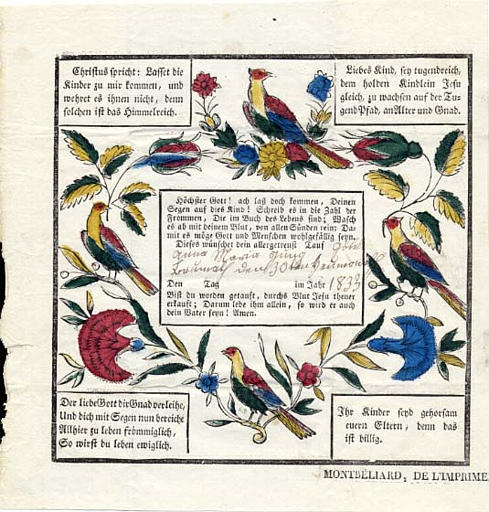 Christus spricht: Lasset die
Kinder zu mir kommen, und
wehret es ihnen nicht, denn
solchen ist das Himmelreich.
Liebes Kind, sey tugendreich,
dem holden Kindlein Jesu
gleich, zu wachsen auf der Tu-
gend Pfad, an Alter und Gnad.
Höchster Gott! ach laß doch kommen, Deinen
Segen auf dies Kind! Schreib es in die Zahl der
Frommen, Die im Buch des Lebens sind; Wasch
es ab mit deinem Blut, von allen Sünden rein; Da-
mit es möge Gott und Menschen wohlgefällig seyn.
Dieses wünschet dein allergetreust Tauf
Anna Maria Jung
den 30ten
Den Tag im Jahr 1833
Bist du worden getauft, durchs Blut Jesu theuer
erkauft; Darum lebe ihm allein, so wird er auch
dein Vater seyn! Amen.
Der liebe Gott dir Gnad verleihe,
Und dich mit Segen nun bereiche
Allhier zu leben frömmiglich,
So wirst du leben ewiglich.
Ihr Kinder seyd gehorsam
euern Eltern, denn das
ist billig.
MONTBÉLIARD, DE L'IMPRIME